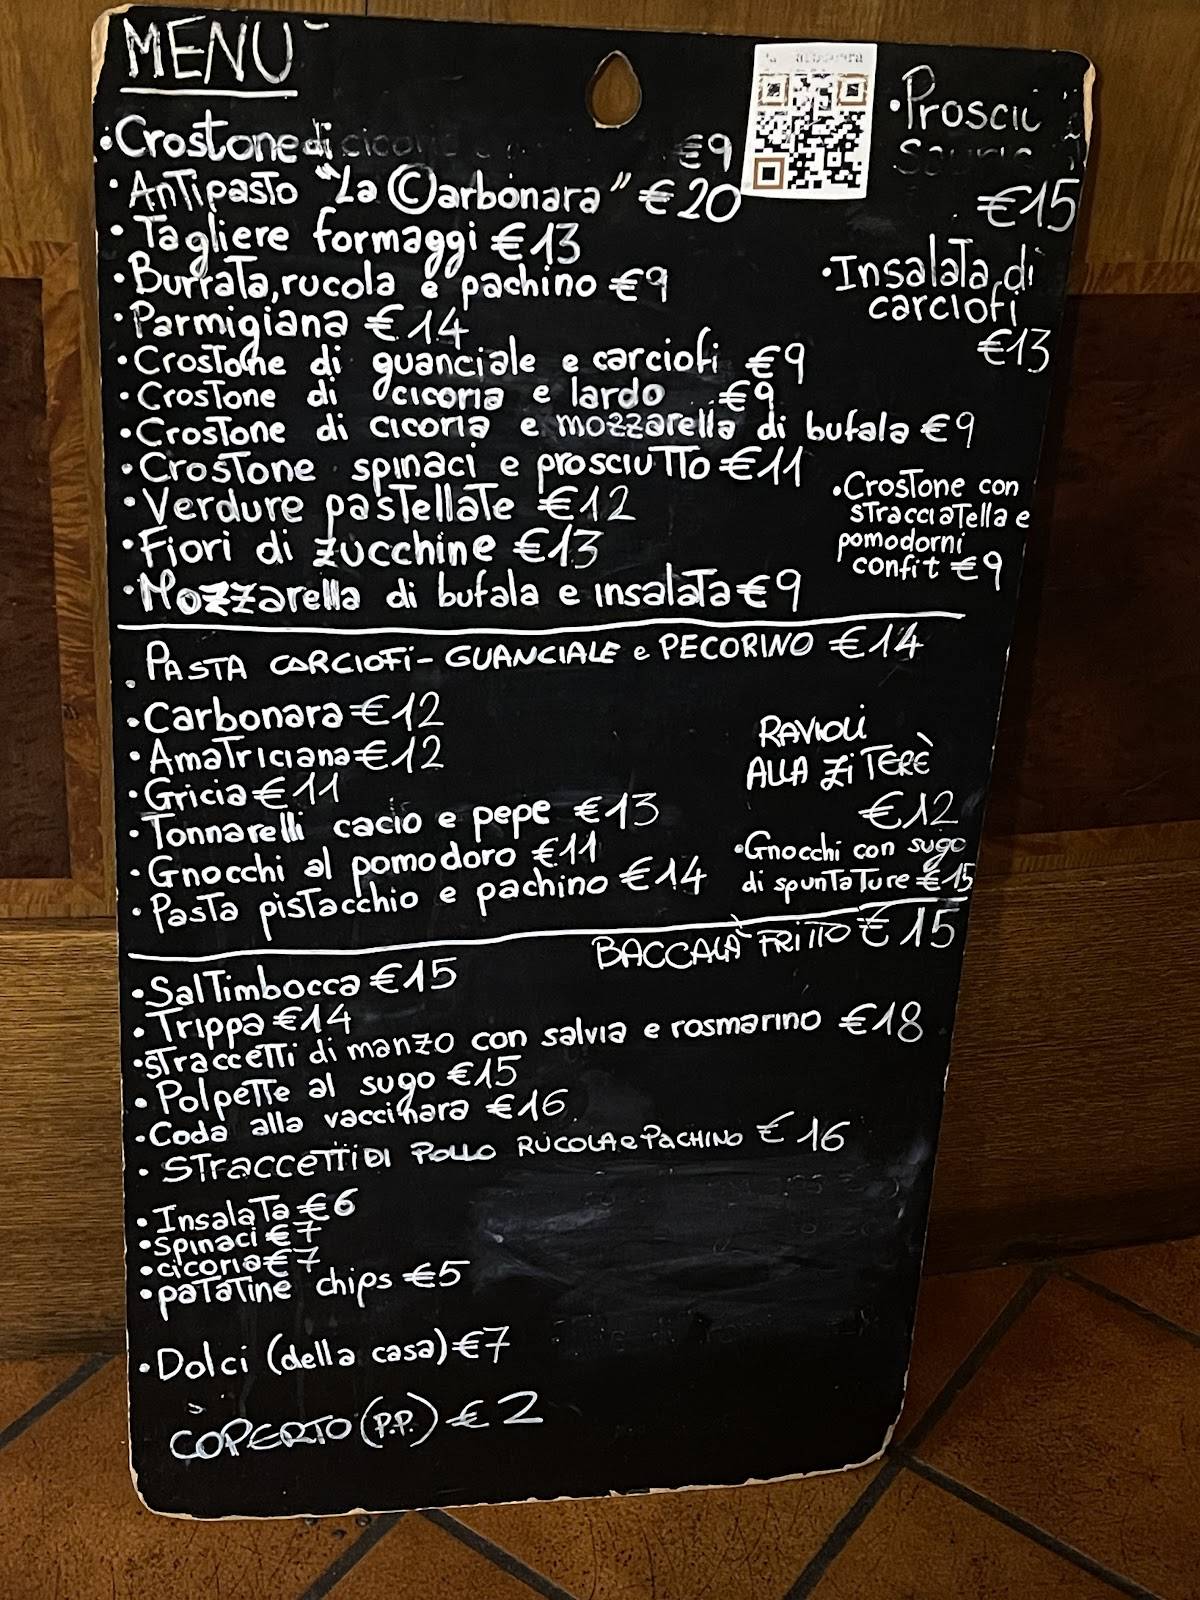 MENU
• Crostone di cicoria €9
• Antipasto "La Carbonara" €20
• Tagliere formaggi €13
• Burrata, rucola e pachino €9
• Parmigiana €14
• Crostone di guanciale e carciofi €9
• Crostone di cicoria e lardo €9
• Crostone di cicoria e mozzarella di bufala €9
• Crostone spinaci e prosciutto €11
• Verdure pastellate €12
• Fiori di zucchine €13
• Mozzarella di bufala e insalata €9
• Prosciu
€15
• Insalata di
carciofi
€13
• Crostone con
stracciatella e
pomodorni
confit €9
• PASTA CARCIOFI - GUANCIALE e PECORINO €14
• Carbonara €12
• Amatriciana €12
• Gricia €11
• Tonnarelli cacio e pepe €13
• Gnocchi al pomodoro €11
• Pasta pistacchio e pachino €14
RAVIOLI
ALLA ZI TERÈ
€12
• Gnocchi con sugo
di spuntature €15
BACCALÀ FRITTO €15
• Saltimbocca €15
• Trippa €14
• Straccetti di manzo con salvia e rosmarino €18
• Polpette al sugo €15
• Coda alla vaccinara €16
• STRACCETTI DI POLLO RUCOLA e PACHINO €16
• Insalata €6
• spinaci €7
• cicoria €7
• patatine chips €5
• Dolci (della casa) €7
COPERTO (P.P.) €2